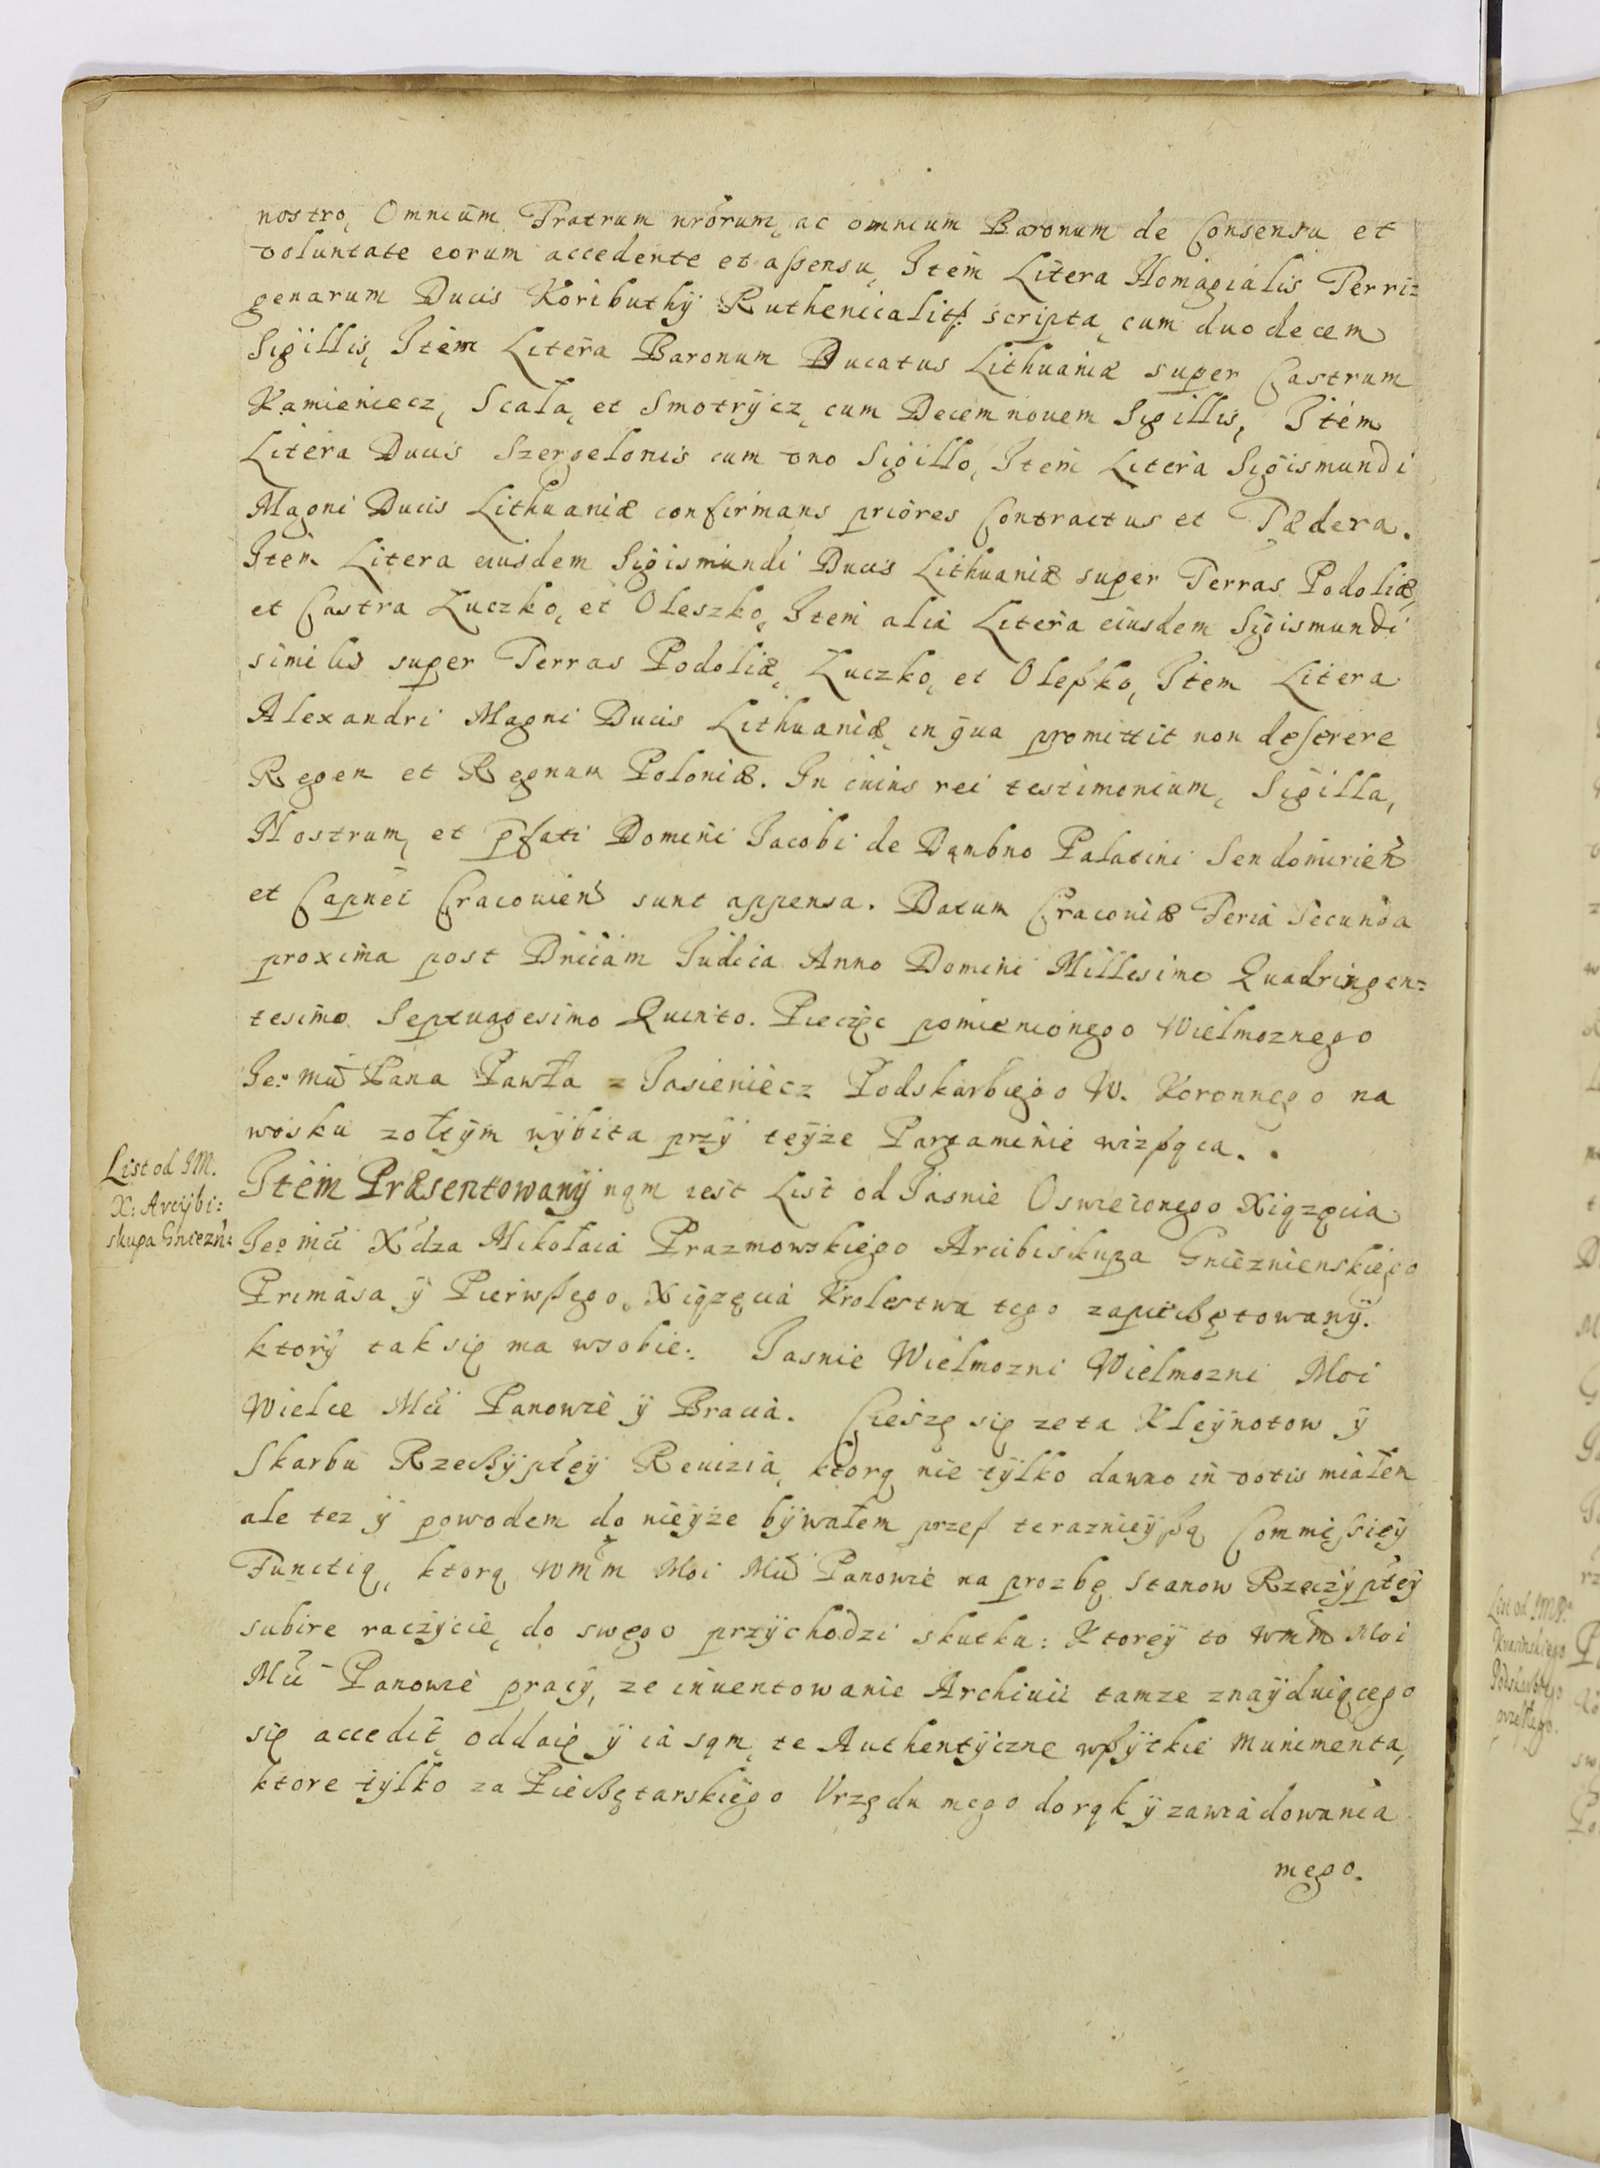 nostro, Omnium Fratrum nrorum, ac omnium Baronum de Consensu et
voluntate eorum accedente et assensu, Item Litera Homagialis Terri=
genarum Ducis Koributhÿ Ruthenicalitr: scripta, cum duodecem
Sigillis, Item Litera Baronum Ducatus Lithuaniæ super Castrum
Kamieniecz, Scala, et Smotrÿcz, cum Decem novem Sigillis, Item
Litera Ducis Szergelonis cum vno Sigillo, Item Litera Sigismundi
Magni Ducis Lithuaniæ confirmans priores Contractus et Fædera.
Item Litera eiusdem Sigismundi Ducis Lithuaniæ super Terras Podoliæ,
et Castra Luczko, et Oleszko, Item alia Litera eiusdem Sigismundi
similis super Terras Podoliæ, Luczko, et Oleßko, Item Litera
Alexandri Magni Ducis Lithuaniæ, in qua promittit non deserere
Regem et Regnum Poloniæ. In cuius rei testimonium, Sigilla,
Nostrum, et pfati Domini Jacobi de Dąmbno Palatini Sendomirien
et Capnei Cracovien sunt appensa. Datum Cracoviæ Feria Secunda
proxima post Dnicam Judica Anno Domini Millesimo Quadringen=
tesimo Septuagesimo Quinto. Pieczęc pomienionego Wielmoznego
Jeo Mci Pana Pawła z Jasieniecz Podskarbiego W. Koronnego na
wosku zołtÿm wÿbita przÿ teÿze Pargaminie wisząca.
List od JM.
X: Arcÿbi:
skupa Gniezn:
Item Præsentowanÿ nąm iest List od Jasnie Oswieconego Xiązęcia
Jeo mci Xdza Mikołaia Prazmowskiego Arcibiskupa Gnieznienskiego
Primasa ÿ Pierwßego, Xiązęcia Krolestwa tego zapieczętowanÿ.
ktorÿ tak się ma wsobie: Jasnie Wielmozni Wielmozni Moi
Wielce Mci Panowie ÿ Bracia. Cieszę się ze ta Kleÿnotow ÿ
Skarbu Rzeczÿptеÿ Revizia, ktorą nie tÿlko dawno in votis miałem
ale tez ÿ powodem do nieÿze bÿwałem przes teraznieÿßą Commissieÿ
Functią, ktorą Wmm Moi Mci Panowie na prozbę Stanow Rzeczÿpteÿ
subire raczÿcie, do swego przÿchodzi skutku: Ktoreÿ to Wmm Moi
Mci Panowie pracÿ, ze inventowanie Archivii tamze znaÿduiącego
się accedit, oddaię ÿ ia sąm, te Authentÿczne wßÿtkie Munimenta,
ktore tÿlko za Pieczętarskiego Vrzędu mego do rąk ÿ zawiadowania
mego.
List od JMP.
Krasinskiego
Podskarbiego
przeßłego.